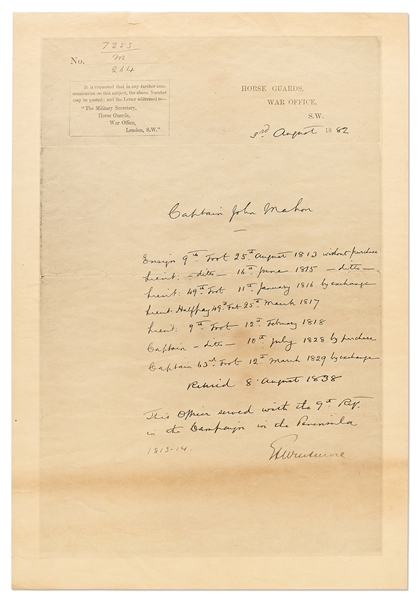 No. 7223
M
264
It is requested that in any further com-
munication on this subject, the above Number
may be quoted; and the Letter addressed to—
"The Military Secretary,
Horse Guards,
War Office,
London, S.W."
HORSE GUARDS,
WAR OFFICE,
S.W.
3rd August 1882
Captain John Mahon
Ensign 9th Foot 25th August 1813 without purchase
Lieut: - ditto - 16th June 1815 - ditto -
Lieut: 49th Foot 11th January 1816 by exchange
Lieut: Halfpay 49th Foot 25th March 1817
Lieut: 9th Foot 12th February 1818
Captain - ditto - 10th July 1828 by purchase
Captain 63rd Foot 12th March 1829 by exchange
Retired 8 August 1838
This Officer served with the 9th Regt.
in the Campaign in the Peninsula
1813-14.